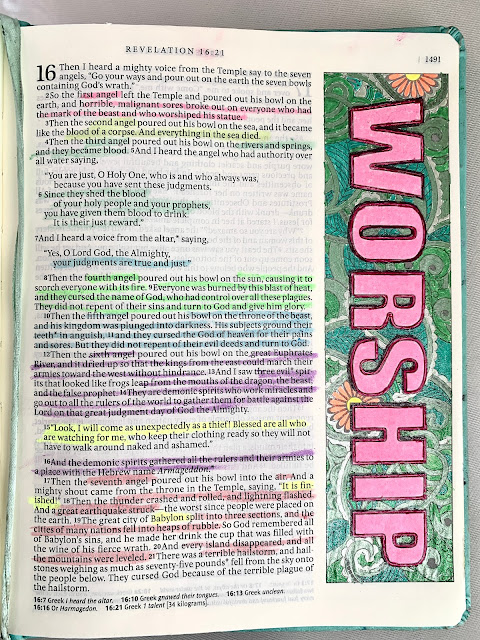 REVELATION 16:21
1491
16 Then I heard a mighty voice from the Temple say to the seven
angels, "Go your ways and pour out on the earth the seven bowls
containing God's wrath."
2So the first angel left the Temple and poured out his bowl on the
earth, and horrible, malignant sores broke out on everyone who had
the mark of the beast and who worshiped his statue.
3Then the second angel poured out his bowl on the sea, and it became
like the blood of a corpse. And everything in the sea died.
4Then the third angel poured out his bowl on the rivers and springs,
and they became blood. 5And I heard the angel who had authority over
all water saying,
"You are just, O Holy One, who is and who always was,
because you have sent these judgments.
6 Since they shed the blood
of your holy people and your prophets,
you have given them blood to drink.
It is their just reward."
7And I heard a voice from the altar,* saying,
"Yes, O Lord God, the Almighty,
your judgments are true and just."
8Then the fourth angel poured out his bowl on the sun, causing it to
scorch everyone with its fire. 9Everyone was burned by this blast of heat,
and they cursed the name of God, who had control over all these plagues.
They did not repent of their sins and turn to God and give him glory.
10Then the fifth angel poured out his bowl on the throne of the beast,
and his kingdom was plunged into darkness. His subjects ground their
teeth* in anguish, 11and they cursed the God of heaven for their pains
and sores. But they did not repent of their evil deeds and turn to God.
12Then the sixth angel poured out his bowl on the great Euphrates
River, and it dried up so that the kings from the east could march their
armies toward the west without hindrance. 13And I saw three evil* spir-
its that looked like frogs leap from the mouths of the dragon, the beast,
and the false prophet. 14They are demonic spirits who work miracles and
go out to all the rulers of the world to gather them for battle against the
Lord on that great judgment day of God the Almighty.
15"Look, I will come as unexpectedly as a thief! Blessed are all who
are watching for me, who keep their clothing ready so they will not
have to walk around naked and ashamed."
16And the demonic spirits gathered all the rulers and their armies to
a place with the Hebrew name Armageddon.*
17Then the seventh angel poured out his bowl into the air. And a
mighty shout came from the throne in the Temple, saying, "It is fin-
ished!" 18Then the thunder crashed and rolled, and lightning flashed.
And a great earthquake struck—the worst since people were placed on
the earth. 19The great city of Babylon split into three sections, and the
cities of many nations fell into heaps of rubble. So God remembered all
of Babylon's sins, and he made her drink the cup that was filled with
the wine of his fierce wrath. 20And every island disappeared, and all
the mountains were leveled. 21There was a terrible hailstorm, and hail-
stones weighing as much as seventy-five pounds* fell from the sky onto
the people below. They cursed God because of the terrible plague of
the hailstorm.
16:7 Greek I heard the altar. 16:10 Greek gnawed their tongues. 16:13 Greek unclean.
16:16 Or Harmagedon. 16:21 Greek 1 talent [34 kilograms].
WORSHIP